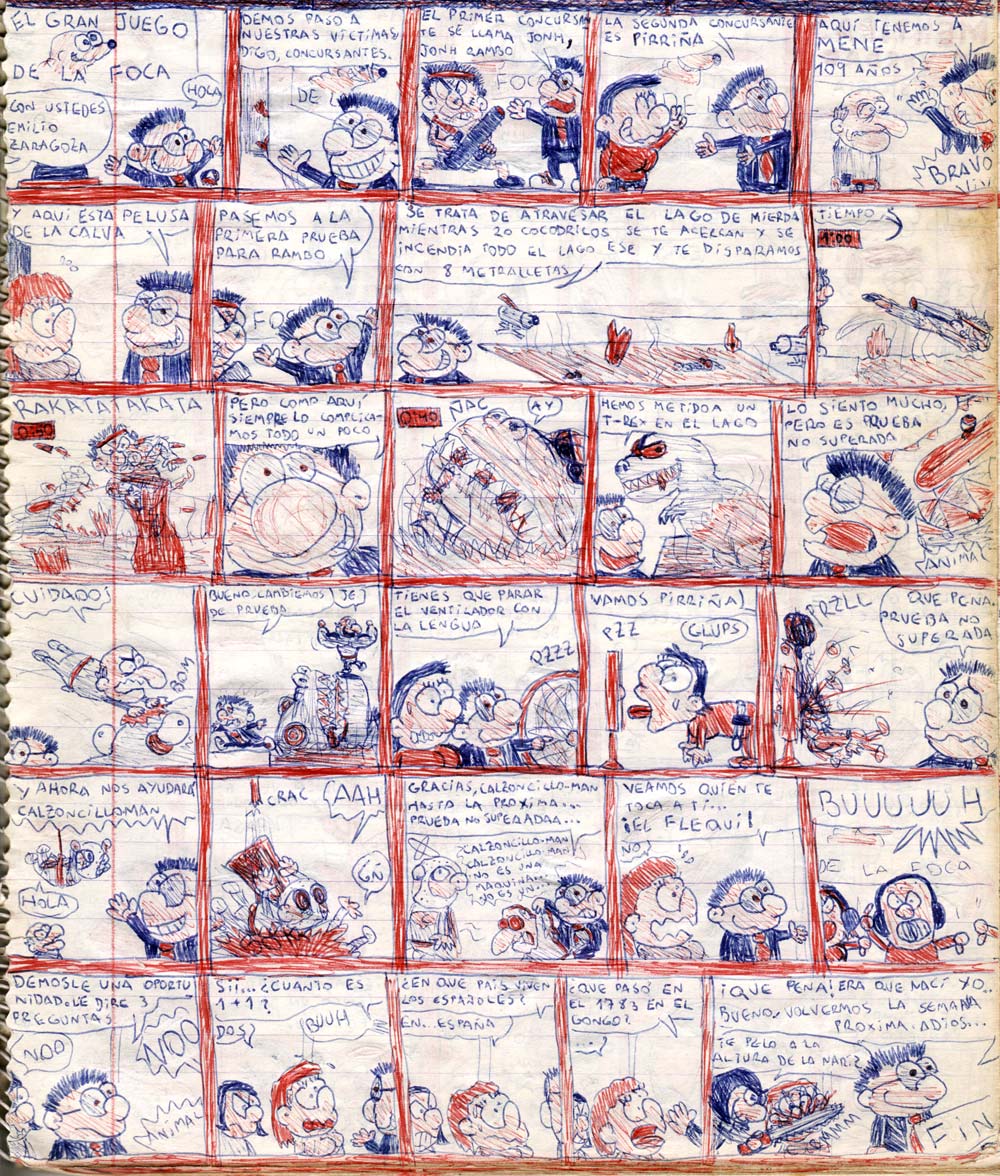 EL GRAN JUEGO
DE LA FOCA
CON USTEDES
EMILIO
ZARAGOZA
HOLA
DEMOS PASO A
NUESTRAS VICTIMAS
DIGO, CONCURSANTES.
DE L
EL PRIMER CONCURSAN
TE SE LLAMA JONH,
JONH RAMBO
FOCA
LA SEGUNDA CONCURSANTE
ES PIRRIÑA
DE L
AQUÍ TENEMOS A
MENE
109 AÑOS
BRAVO
VIV
Y AQUI ESTA PELUSA
DE LA CALVA
PASEMOS A LA
PRIMERA PRUEBA
PARA RAMBO
FOC
SE TRATA DE ATRAVESAR EL LAGO DE MIERDA
MIENTRAS 20 COCODRILOS SE TE ACERCAN Y SE
INCENDIA TODO EL LAGO ESE Y TE DISPARAMOS
CON 8 METRALLETAS
TIEMPO
1:00
RAKATATAKATA
0:50
PERO COMO AQUÍ
SIEMPRE LO COMPLICA-
MOS TODO UN POCO
0:40
ÑAC
AY
HEMOS METIDO A UN
T-REX EN EL LAGO
LO SIENTO MUCHO,
PERO ES PRUEBA
NO SUPERADA
ANIMAL
CUIDADOS
BOM
BUENO, CAMBIEMOS
DE PRUEBA
JEJ
TIENES QUE PARAR
EL VENTILADOR CON
LA LENGUA
RZZZ
VAMOS PIRRIÑA
PZZ
GLUPS
PRZLL
QUE PENA.
PRUEBA NO
SUPERADA
Y AHORA NOS AYUDARA
CALZONCILLO-MAN
HOLA
CRAC
AAH
GN
GRACIAS, CALZONCILLO-MAN
HASTA LA PROXIMA...
PRUEBA NO SUPERADAA...
CALZONCILLO-MAN
CALZONCILLO-MAN
NO ES UNA
MAQUINA...
ES UN...
VEAMOS QUIEN TE
TOCA A TÍ...
¡EL FLEQUI!
NO
BUUUUUH
DE LA FOCA
DEMOSLE UNA OPORTU
NIDAD. LE DIRE 3
PREGUNTAS
NOO
NOO
ANIMAL
SII... ¿CUANTO ES
1+1?
DOS
BUUH
¿EN QUE PAÍS VIVEN
LOS ESPAÑOLES?
EN... ESPAÑA
¿QUE PASÓ EN
EL 1783 EN EL
GONGO?
...
¡QUE PENA! ERA QUE NACÍ YO..
BUENO, VOLVERMOS LA SEMANA
PROXIMA. ADIOS...
TE PELO A LA
ALTURA DE LA NARÍZ
FIN